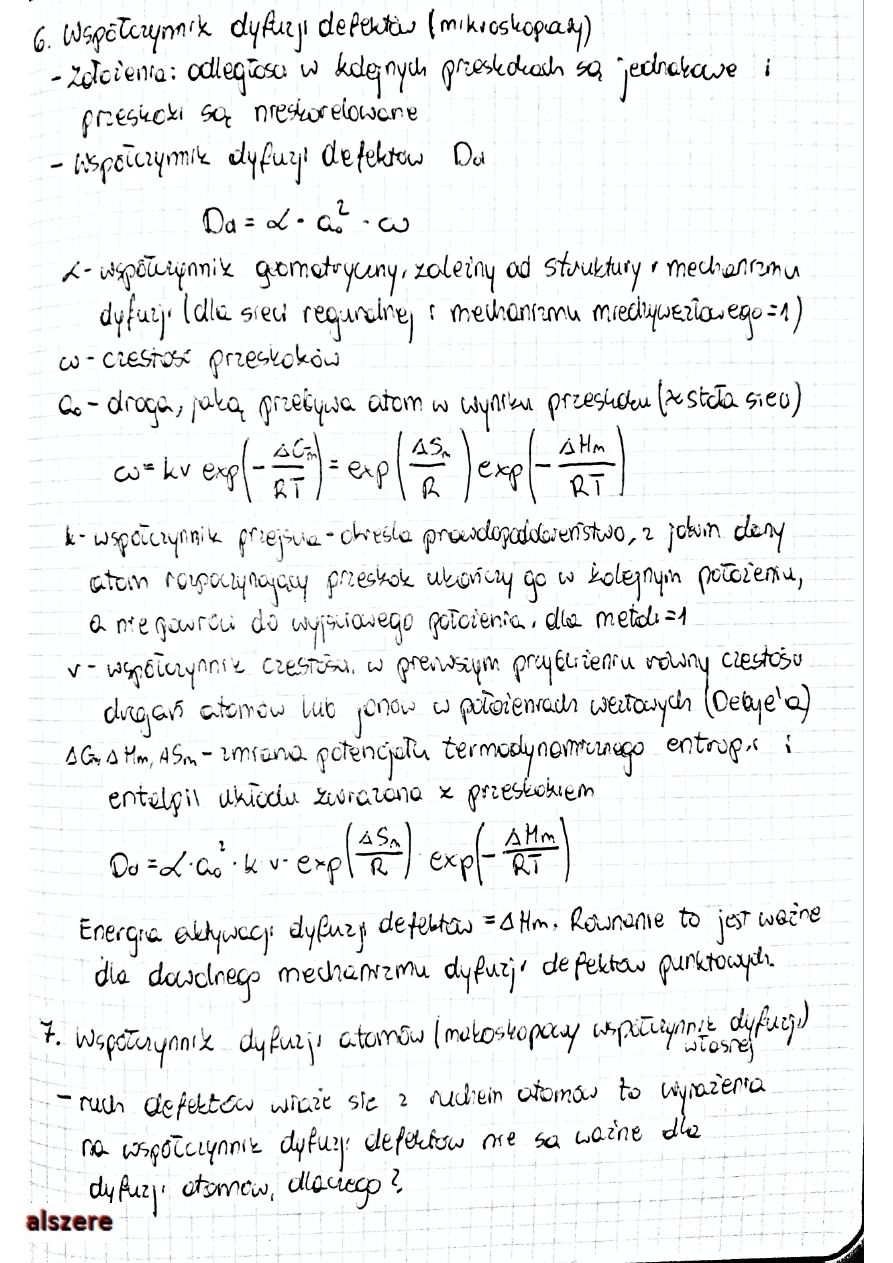 6. Współczynnik dyfuzji defektów (mikroskopowy)
- Założenia: odległości w kolejnych przeskokach są jednakowe i
przeskoki są nieskorelowane
- Współczynnik dyfuzji defektów Dd
Dd = α · a₀² · ω
α - współczynnik geometryczny, zależny od struktury i mechanizmu
dyfuzji (dla sieci regularnej i mechanizmu międzywęzłowego = 1)
ω - częstość przeskoków
a₀ - droga, jaką przebywa atom w wyniku przeskoku (≈ stała sieci)
ω = kν exp(-ΔGm/RT) = exp(ΔSm/R) exp(-ΔHm/RT)
k - współczynnik przejścia - określa prawdopodobieństwo, z jakim dany
atom rozpoczynający przeskok ukończy go w kolejnym położeniu,
a nie powróci do wyjściowego położenia, dla metali = 1
ν - współczynnik częstości, w pierwszym przybliżeniu równy częstości
drgań atomów lub jonów w położeniach węzłowych (Debye'a)
ΔGm, ΔHm, ΔSm - zmiana potencjału termodynamicznego entropii i
entalpii układu związana z przeskokiem
Dd = α · a₀² · k ν · exp(ΔSm/R) exp(-ΔHm/RT)
Energia aktywacji dyfuzji defektów = ΔHm. Równanie to jest ważne
dla dowolnego mechanizmu dyfuzji defektów punktowych.
7. Współczynnik dyfuzji atomów (makoskopowy współczynnik dyfuzji)
własnej
- ruch defektów wiąże się z ruchem atomów to wyrażenia
na współczynnik dyfuzji defektów nie są ważne dla
dyfuzji atomów, dlaczego?
alszere